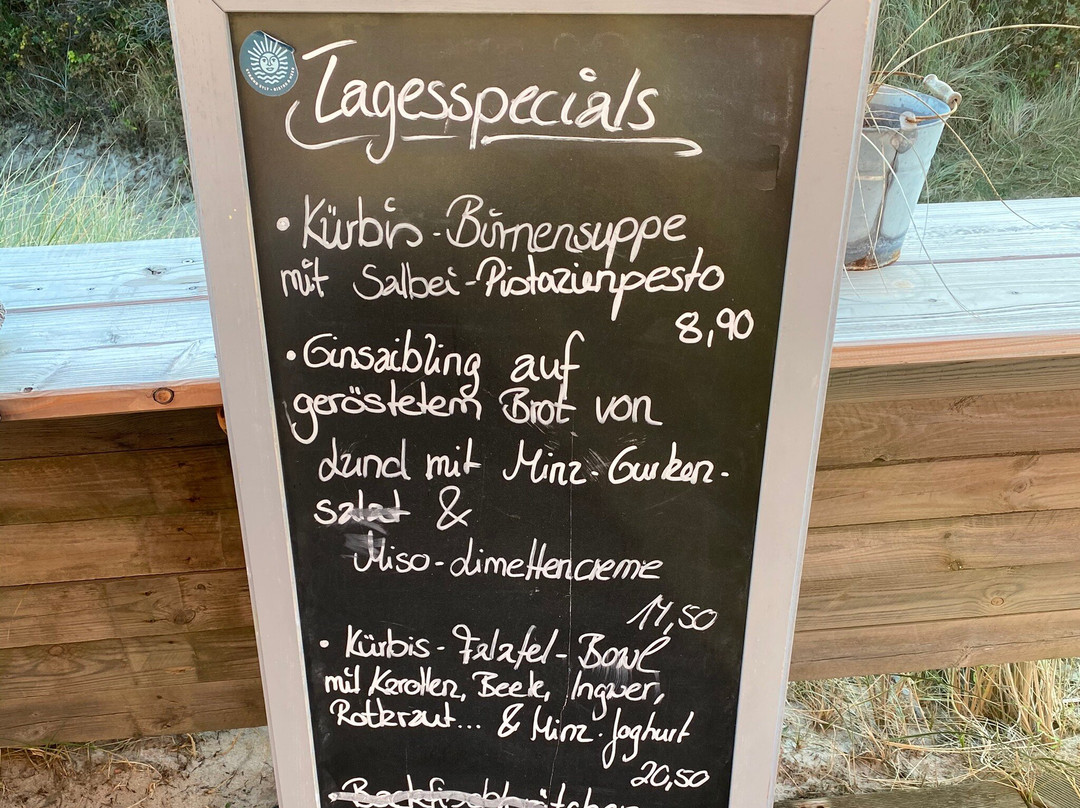 Tagesspecials
• Kürbis-Birnensuppe
mit Salbei-Pistazienpesto
8,90
• Ginsaibling auf
geröstetem Brot von
Lund mit Minz-Gurken-
salat &
Miso-Limettencreme
17,50
• Kürbis-Falafel-Bowl
mit Karotten, Beete, Ingwer,
Rotkraut... & Minz-Joghurt
20,50
• Backfischbrötchen